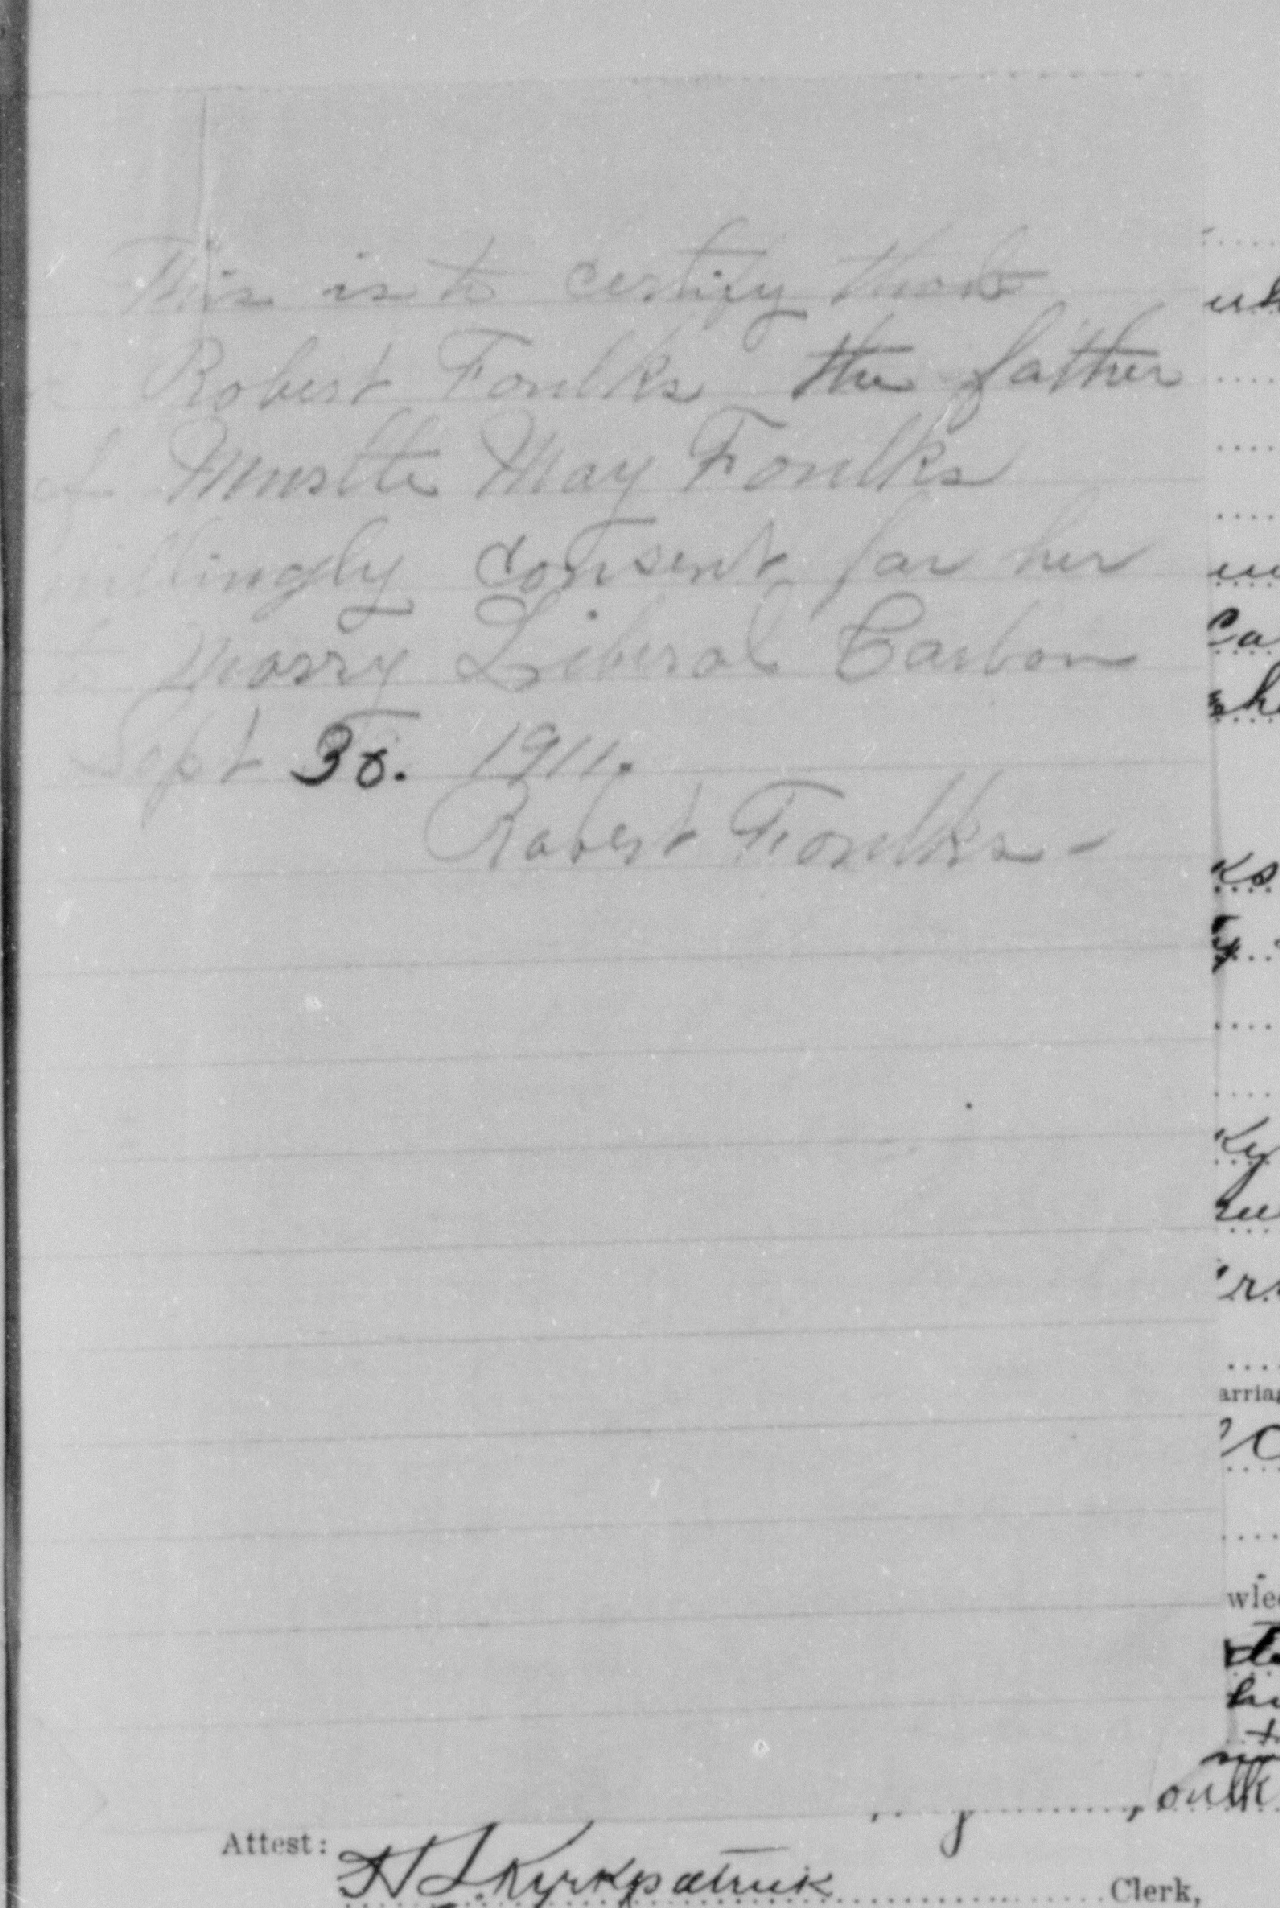 This is to certify that
I Robert Foulks the father
of Muslte May Foulks
willingly consent for her
to marry Liberal Carbon
Sept 30. 1911.
Robert Foulks -
Attest: H L Kyrkpatrick Clerk,